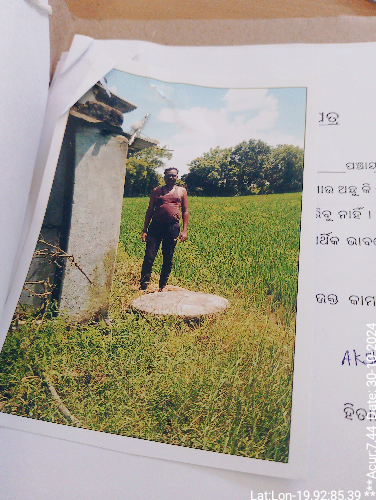 ପତ୍ର
ପଞ୍ଚାୟ
ଅଛୁ କି
ନାହିଁ ।
ଉକ୍ତ କାମ
AK
Lat:Lon-19.92:85.39 ***Acur:7.44 Date: 30-10-2024